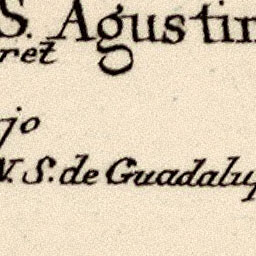 S. Agustin
ret
jo
N. S. de Guadalup